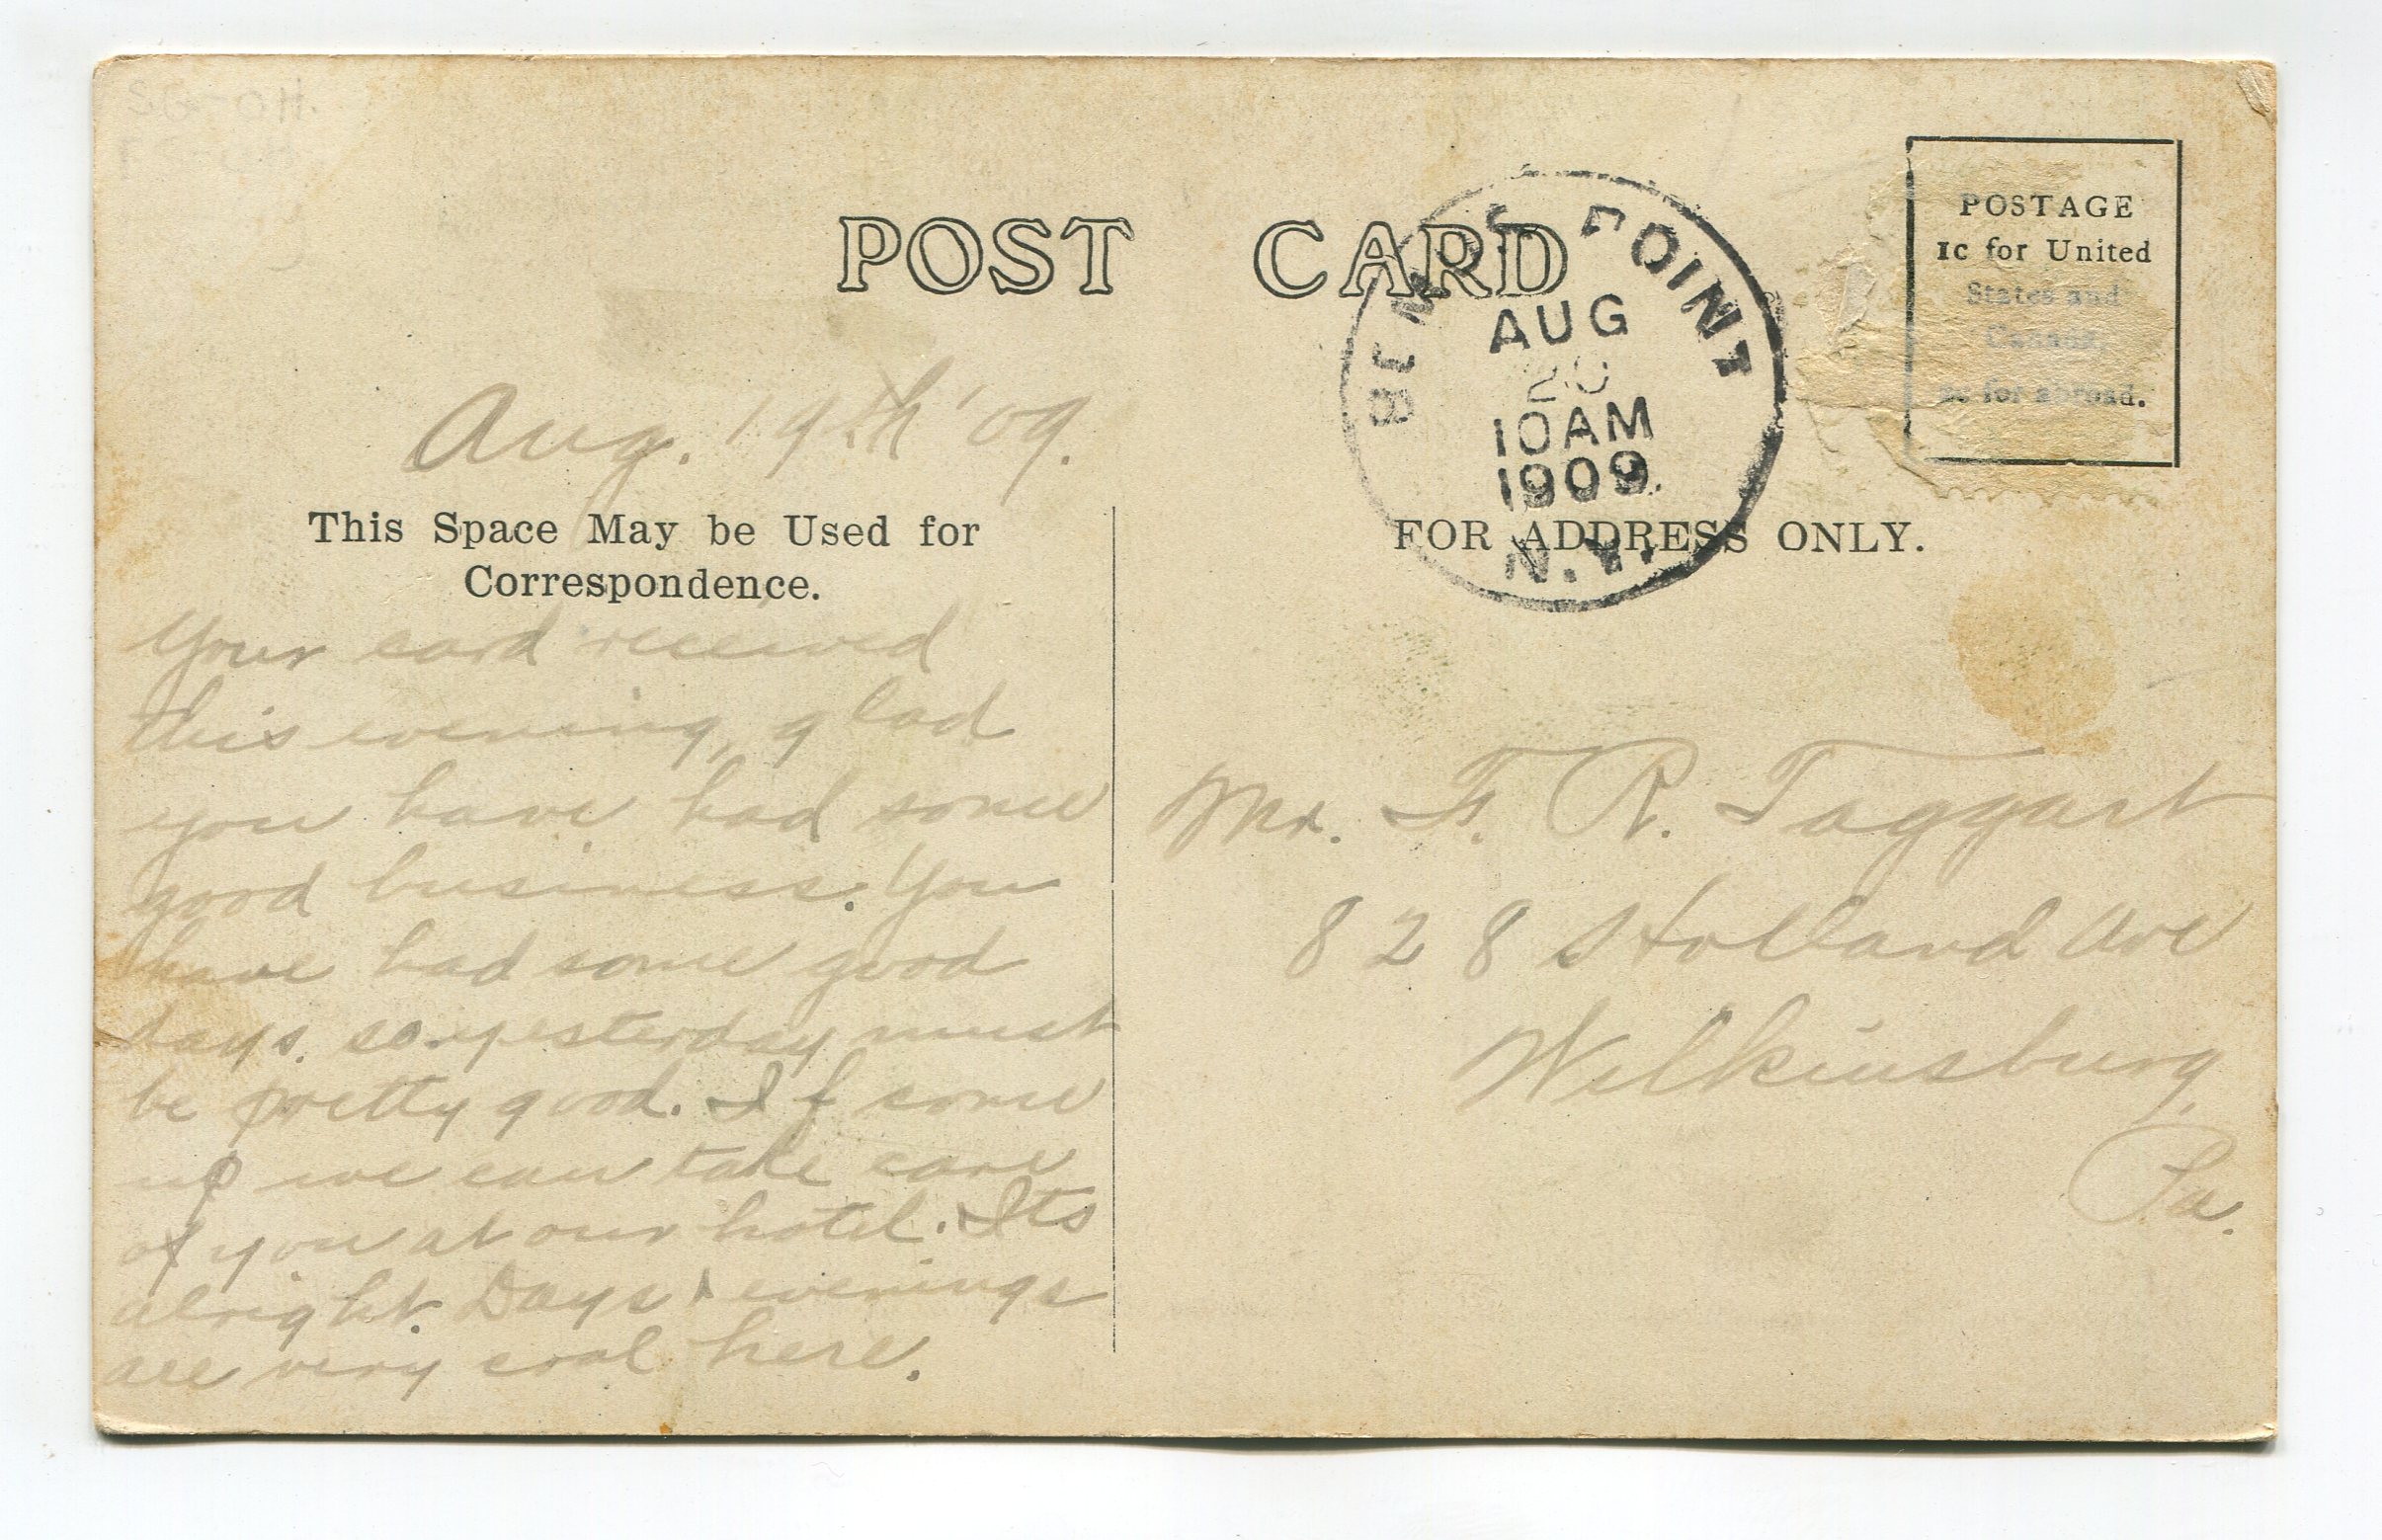 POST CARD
POSTAGE
1c for United
States and
Canada,
2c for abroad.
POINT
AUG
20
10AM
1909.
N.Y.
Aug. 19th '09.
This Space May be Used for
Correspondence.
FOR ADDRESS ONLY.
Your card received
this evening, glad
you have had some
good business. You
have had some good
days. so yesterday must
be pretty good. If come
up we can take care
of you at our hotel. Its
alright. Days & evenings
are very cool here.
Mr. F. R. Taggart
828 Holland Ave
Wilkinsburg,
Pa.